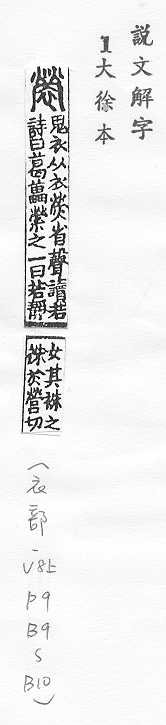 説文解字
1大徐本
褮
鬼衣从衣熒省聲讀若
詩曰葛藟縈之一曰若靜
女其袾之
袾於營切
（衣部-
V8上
p9
B9
S
B10）